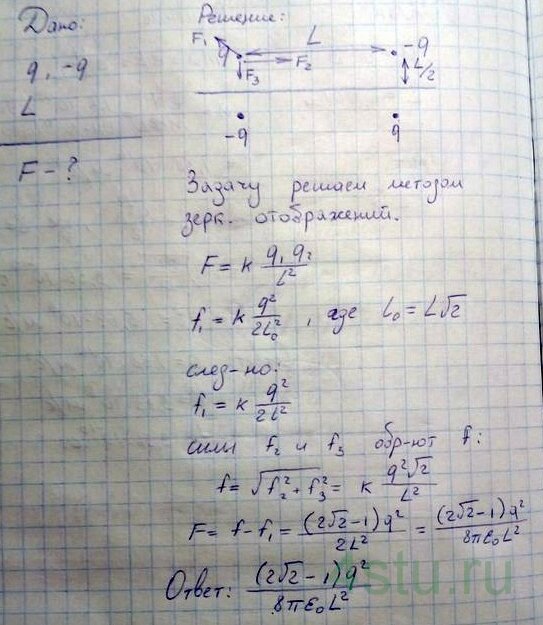 Дано:
q, -q
L
F - ?
Решение:
F₁ q L -q
F₃ F₂ L/2
-q q
Задачу решаем методом
зерк. отображений.
F = к q₁ q₂ / L²
f₁ = к q² / 2L₀² , где L₀ = L√2
след-но:
f₁ = к q² / 2L²
силы f₂ и f₃ обр-ют f:
f = √(f₂² + f₃²) = к q²√2 / L²
F = f - f₁ = (2√2 - 1)q² / 2L² = (2√2 - 1)q² / 8πε₀L²
Ответ: (2√2 - 1)q² / 8πε₀L²
stu.ru